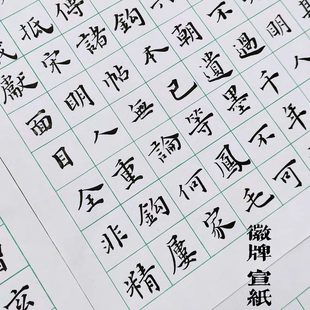 明人
不過千年
朝遺墨不可
鉤本已等鳳毛
傳諸帖無論何家
抵宋明人重鉤屢
獻面目全非精
玄
徽牌宣紙